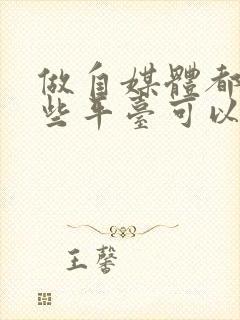 做自媒體都
些平臺可以
王馨